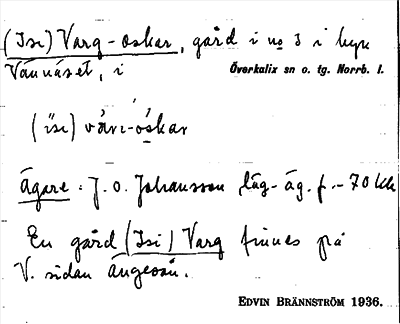 (Isi) Varg-oskar, gård i no 3 i byn
Vännäset, i Överkalix sn o. tg. Norrb. l.
(isi) vàri-óskar
Ägare: J. O. Johansson, läg. äg. f. - 70 kk
En gård (Isi) Varg finnes på
V. sidan Ängesån.
EDVIN BRÄNNSTRÖM 1936.